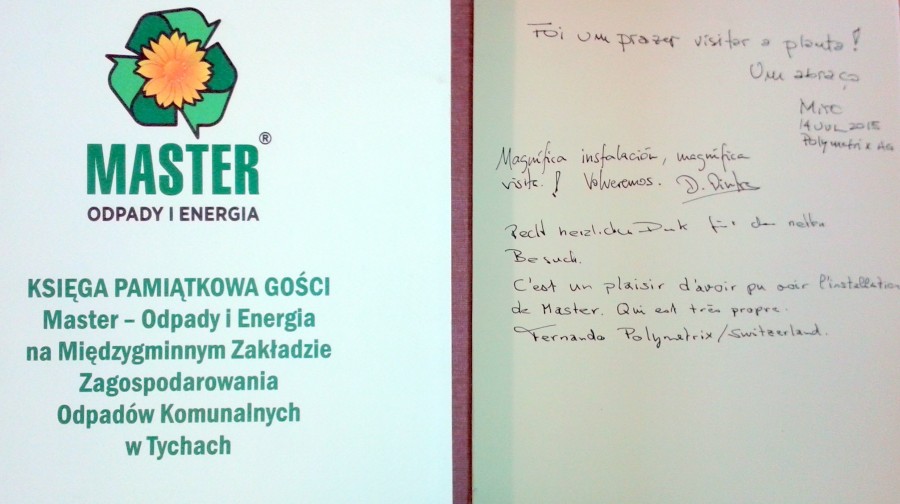 MASTER®
ODPADY I ENERGIA
KSIĘGA PAMIĄTKOWA GOŚCI
Master – Odpady i Energia
na Międzygminnym Zakładzie
Zagospodarowania
Odpadów Komunalnych
w Tychach
Foi um prazer visitar a planta!
Um abraço
14 JUL 2015
Polymetrix AG
Magnífica instalación, magnífica
visita! Volveremos. D.
Recht herzlichen Dank für den netten
Besuch.
C'est un plaisir d'avoir pu voir l'installation
de Master. Qui est très propre.
Fernando Polymetrix/Switzerland.